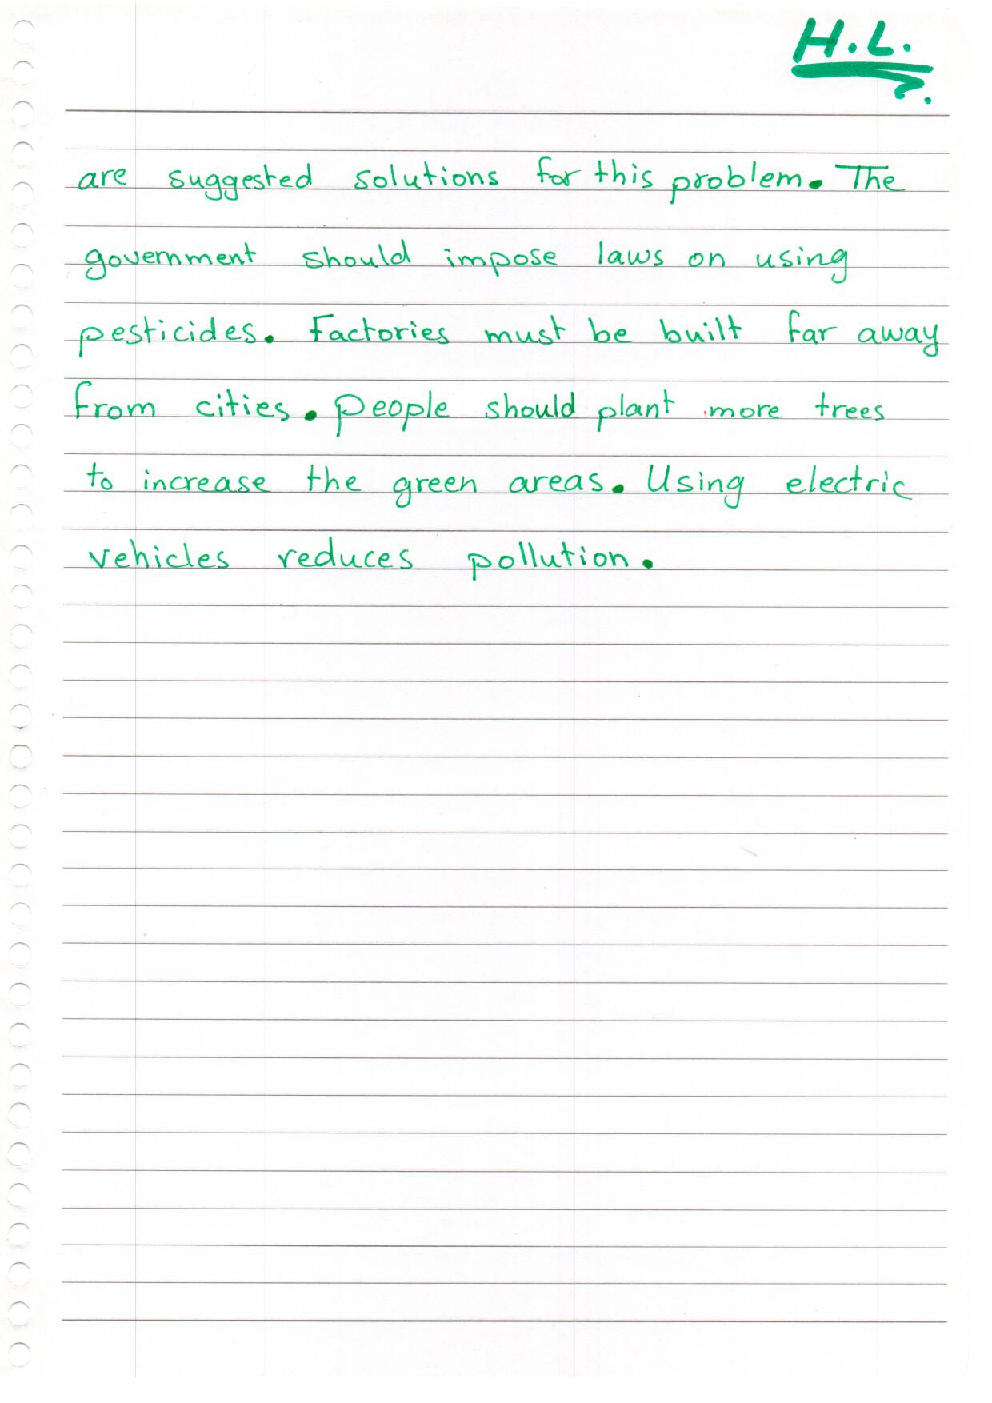 H.L.
are suggested solutions for this problem. The
government should impose laws on using
pesticides. Factories must be built far away
from cities. People should plant more trees
to increase the green areas. Using electric
vehicles reduces pollution.